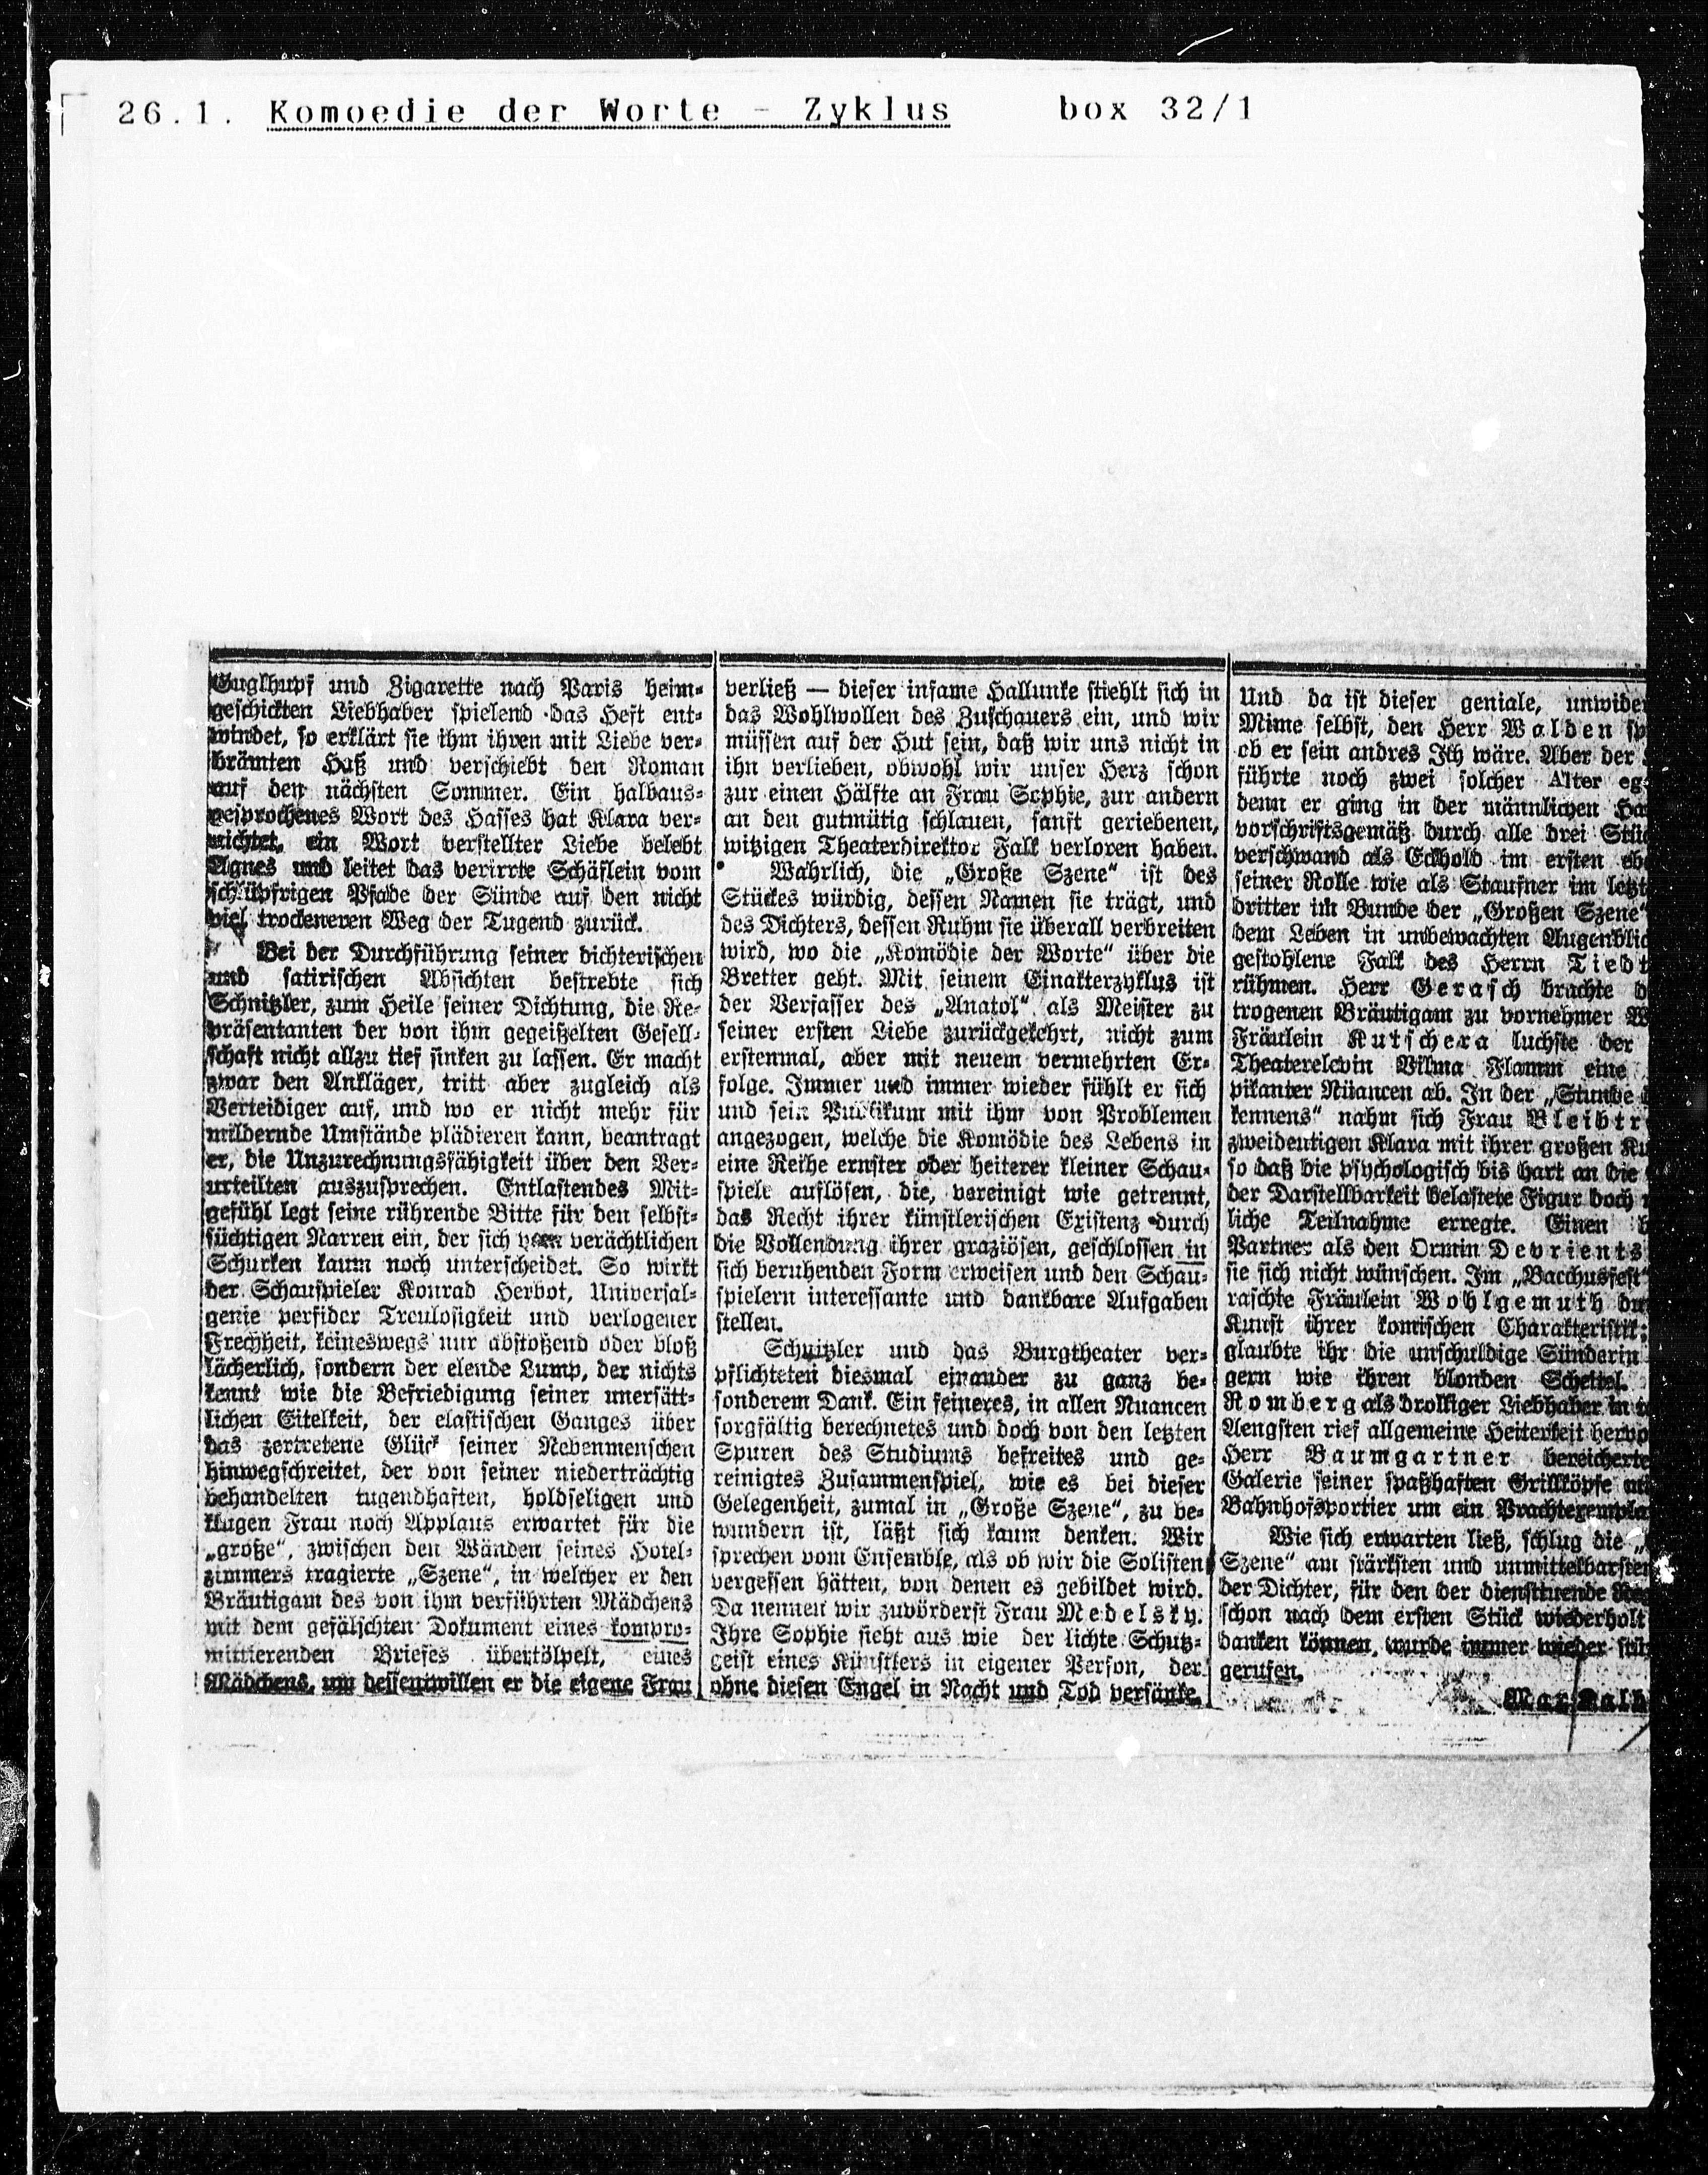 26.1. Komoedie der Worte - Zyklus box 32/1
Guglhupf und Zigarette nach Paris heim-
geschickten Liebhaber spielend das Heft ent-
windet, so erklärt sie ihm ihren mit Liebe ver-
brämten Haß und verschiebt den Roman
auf den nächsten Sommer. Ein halbaus-
gesprochenes Wort des Hasses hat Klara ver-
nichtet, ein Wort verstellter Liebe belebt
Agnes und leitet das verirrte Schäflein vom
schlüpfrigen Pfade der Sünde auf den nicht
viel trockeneren Weg der Tugend zurück.
Bei der Durchführung seiner dichterischen
und satirischen Absichten bestrebte sich
Schnitzler, zum Heile seiner Dichtung, die Re-
präsentanten der von ihm gegeißelten Gesell-
schaft nicht allzu tief sinken zu lassen. Er macht
zwar den Ankläger, tritt aber zugleich als
Verteidiger auf, und wo er nicht mehr für
mildernde Umstände plädieren kann, beantragt
er, die Unzurechnungsfähigkeit über den Ver-
urteilten auszusprechen. Entlastendes Mit-
gefühl legt seine rührende Bitte für den selbst-
süchtigen Narren ein, der sich vom verächtlichen
Schurken kaum noch unterscheidet. So wirkt
der Schauspieler Konrad Herbot, Universal-
genie perfider Treulosigkeit und verlogener
Frechheit, keineswegs nur abstoßend oder bloß
lächerlich, sondern der elende Lump, der nichts
kennt wie die Befriedigung seiner unersätt-
lichen Eitelkeit, der elastischen Ganges über
das zertretene Glück seiner Nebenmenschen
hinwegschreitet, der von seiner niederträchtig
behandelten tugendhaften, holdseligen und
klugen Frau noch Applaus erwartet für die
„große“, zwischen den Wänden seines Hotel-
zimmers tragierte „Szene“, in welcher er den
Bräutigam des von ihm verführten Mädchens
mit dem gefälschten Dokument eines kompro-
mittierenden Briefes übertölpelt, eines
Mädchens, um dessentwillen er die eigene Frau
verließ — dieser infame Hallunke stiehlt sich in
das Wohlwollen des Zuschauers ein, und wir
müssen auf der Hut sein, daß wir uns nicht in
ihn verlieben, obwohl wir unser Herz schon
zur einen Hälfte an Frau Sophie, zur andern
an den gutmütig schlauen, sanft geriebenen,
witzigen Theaterdirektor Falk verloren haben.
Wahrlich, die „Große Szene“ ist des
Stückes würdig, dessen Namen sie trägt, und
des Dichters, dessen Ruhm sie überall verbreiten
wird, wo die „Komödie der Worte“ über die
Bretter geht. Mit seinem Einakterzyklus ist
der Verfasser des „Anatol“ als Meister zu
seiner ersten Liebe zurückgekehrt, nicht zum
erstenmal, aber mit neuem vermehrten Er-
folge. Immer und immer wieder fühlt er sich
und sein Publikum mit ihm von Problemen
angezogen, welche die Komödie des Lebens in
eine Reihe ernster oder heiterer kleiner Schau-
spiele auflösen, die, vereinigt wie getrennt,
das Recht ihrer künstlerischen Existenz durch
die Vollendung ihrer graziösen, geschlossen in
sich beruhenden Form erweisen und den Schau-
spielern interessante und dankbare Aufgaben
stellen.
Schnitzler und das Burgtheater ver-
pflichteten diesmal einander zu ganz be-
sonderem Dank. Ein feineres, in allen Nuancen
sorgfältig berechnetes und doch von den letzten
Spuren des Studiums befreites und ge-
reinigtes Zusammenspiel, wie es bei dieser
Gelegenheit, zumal in „Große Szene“, zu be-
wundern ist, läßt sich kaum denken. Wir
sprechen vom Ensemble, als ob wir die Solisten
vergessen hätten, von denen es gebildet wird.
Da nennen wir zuvörderst Frau Medelsky.
Ihre Sophie sieht aus wie der lichte Schutz-
geist eines Künstlers in eigener Person, der
ohne diesen Engel in Nacht und Tod versänke.
Und da ist dieser geniale, unwider
Mime selbst, den Herr Walden sp
ob er sein andres Ich wäre. Aber der
führte noch zwei solcher Alter eg
denn er ging in der männlichen Ha
vorschriftsgemäß durch alle drei Stüc
verschwand als Eckhold im ersten eb
seiner Rolle wie als Staufner im letzt
dritter im Bunde der „Großen Szene“
dem Leben in unbewachten Augenblic
gestohlene Falk des Herrn Tiedt
rühmen. Herr Gerasch brachte d
trogenen Bräutigam zu vornehmer W
Fräulein Kutschera luchste der
Theaterelevin Vilma Flamm eine
pikanter Nüancen ab. In der „Stunde
kennens“ nahm sich Frau Bleibtr
zweideutigen Klara mit ihrer großen Ku
so daß die psychologisch bis hart an die
der Darstellbarkeit belastete Figur doch
liche Teilnahme erregte. Einen b
Partner als den Ormin Devrients
sie sich nicht wünschen. Im „Bacchusfest“
raschte Fräulein Wohlgemuth du
Kunst ihrer komischen Charakteristik:
glaubte ihr die unschuldige Sünderin
gern wie ihren blonden Scheitel.
Romberg als drolliger Liebhaber in
Aengsten rief allgemeine Heiterkeit hervo
Herr Baumgartner bereicherte
Galerie seiner spaßhaften Grillköpfe
Bahnhofsportier um ein Prachtexempla
Wie sich erwarten ließ, schlug die „
Szene“ am stärksten und unmittelbarsten
der Dichter, für den der diensttuende Reg
schon nach dem ersten Stück wiederholt
danken können, wurde immer wieder stür
gerufen.
Max Kalb